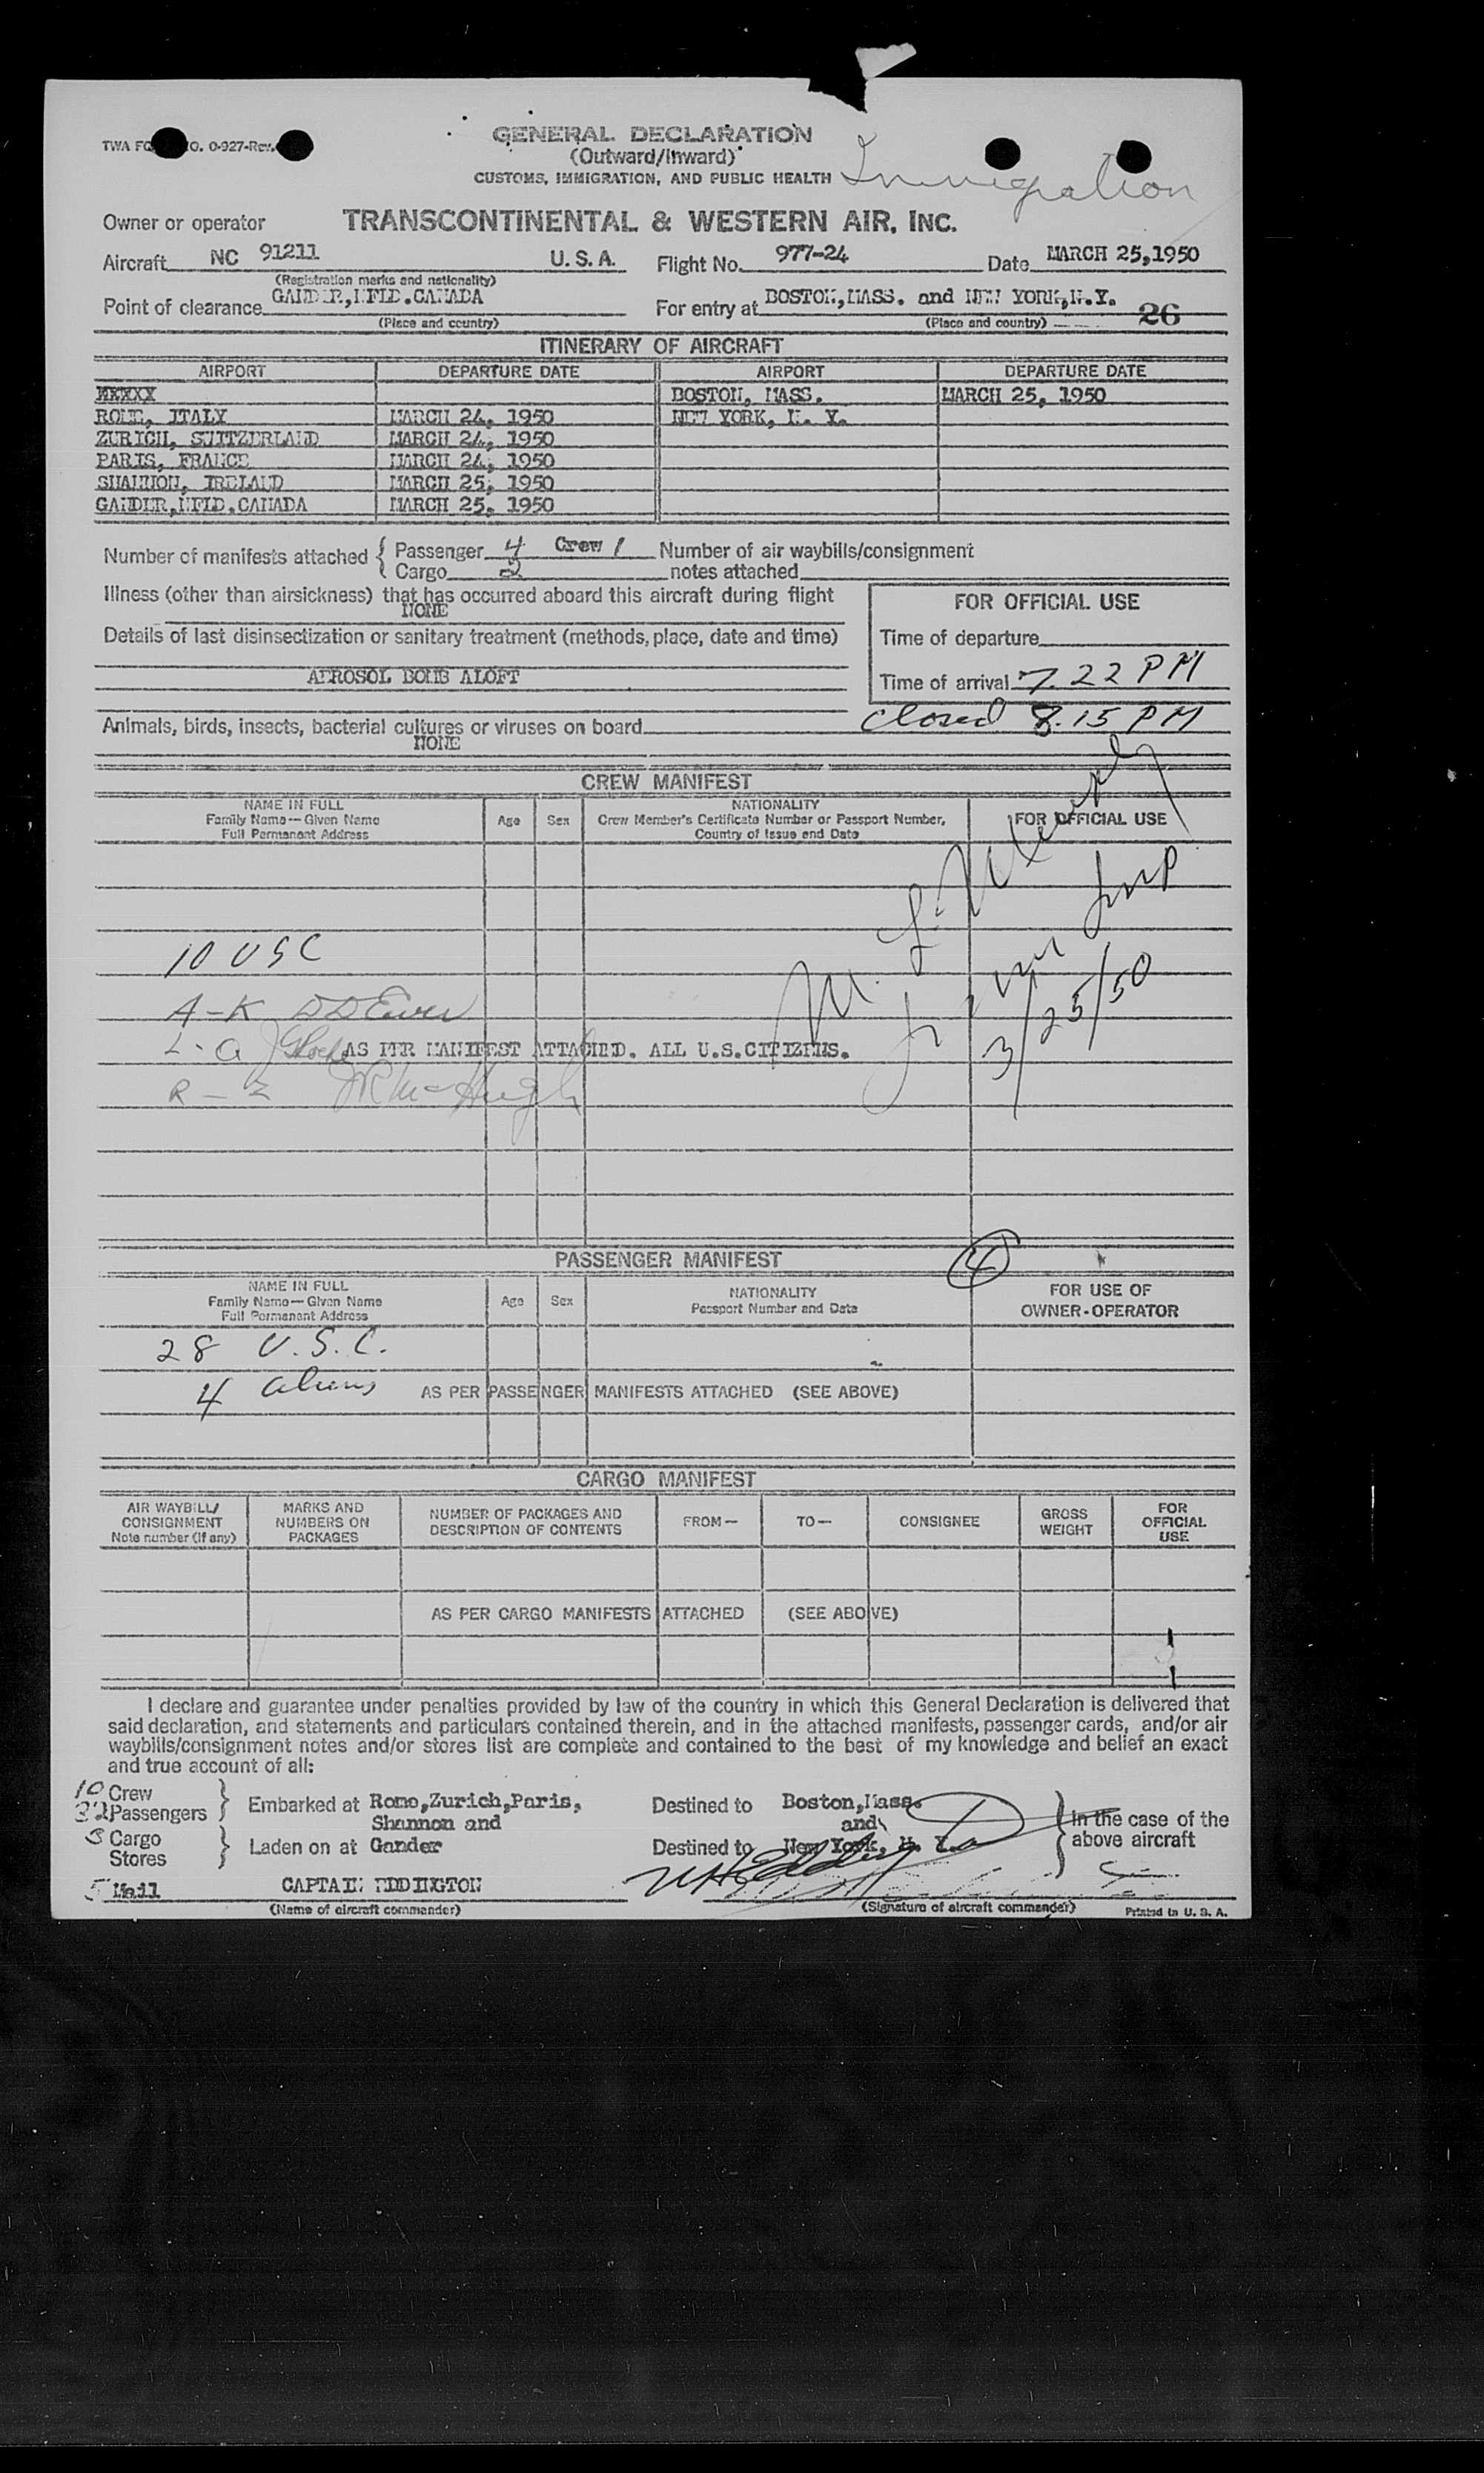 TWA FO O. 0-927-Rev.
GENERAL DECLARATION
(Outward/Inward)
CUSTOMS, IMMIGRATION, AND PUBLIC HEALTH
Immigration
Owner or operator TRANSCONTINENTAL & WESTERN AIR, INC.
Aircraft NC 91211 U. S. A. Flight No. 977-24 Date MARCH 25,1950
(Registration marks and nationality)
Point of clearance GANDER,NFLD.CANADA For entry at BOSTON,MASS. and NEW YORK,N.Y.
(Place and country) (Place and country) 26
ITINERARY OF AIRCRAFT
AIRPORT DEPARTURE DATE AIRPORT DEPARTURE DATE
XXXXX BOSTON, MASS. MARCH 25, 1950
ROME, ITALY MARCH 24, 1950 NEW YORK, N. Y.
ZURICH, SWITZERLAND MARCH 24, 1950
PARIS, FRANCE MARCH 24, 1950
SHANNON, IRELAND MARCH 25, 1950
GANDER,NFLD.CANADA MARCH 25, 1950
Number of manifests attached { Passenger 4 Crew 1 Number of air waybills/consignment
Cargo 2 notes attached
Illness (other than airsickness) that has occurred aboard this aircraft during flight
NONE
FOR OFFICIAL USE
Details of last disinsectization or sanitary treatment (methods, place, date and time)
Time of departure
AEROSOL BOMB ALOFT
Time of arrival 7.22 PM
Closed 8.15 PM
Animals, birds, insects, bacterial cultures or viruses on board
NONE
CREW MANIFEST
NAME IN FULL
Family Name—Given Name
Full Permanent Address
Age
Sex
NATIONALITY
Crew Member's Certificate Number or Passport Number,
Country of Issue and Date
FOR OFFICIAL USE
10 USC
A-K
L-Q AS PER MANIFEST ATTACHED. ALL U.S.CITIZENS.
R-Z JR McHugh
Insp
3/25/50
PASSENGER MANIFEST
4
NAME IN FULL
Family Name—Given Name
Full Permanent Address
Age
Sex
NATIONALITY
Passport Number and Date
FOR USE OF
OWNER-OPERATOR
28 U.S.C.
4 aliens AS PER PASSENGER MANIFESTS ATTACHED (SEE ABOVE)
CARGO MANIFEST
AIR WAYBILL/
CONSIGNMENT
Note number (if any)
MARKS AND
NUMBERS ON
PACKAGES
NUMBER OF PACKAGES AND
DESCRIPTION OF CONTENTS
FROM—
TO—
CONSIGNEE
GROSS
WEIGHT
FOR
OFFICIAL
USE
AS PER CARGO MANIFESTS ATTACHED (SEE ABOVE)
I declare and guarantee under penalties provided by law of the country in which this General Declaration is delivered that
said declaration, and statements and particulars contained therein, and in the attached manifests, passenger cards, and/or air
waybills/consignment notes and/or stores list are complete and contained to the best of my knowledge and belief an exact
and true account of all:
10 Crew
32 Passengers } Embarked at Rome,Zurich,Paris, Destined to Boston,Mass. } In the case of the
Shannon and and above aircraft
3 Cargo
Stores } Laden on at Gander Destined to New York, N. Y.
5 Mail CAPTAIN EDDINGTON
(Name of aircraft commander) (Signature of aircraft commander) Printed in U. S. A.